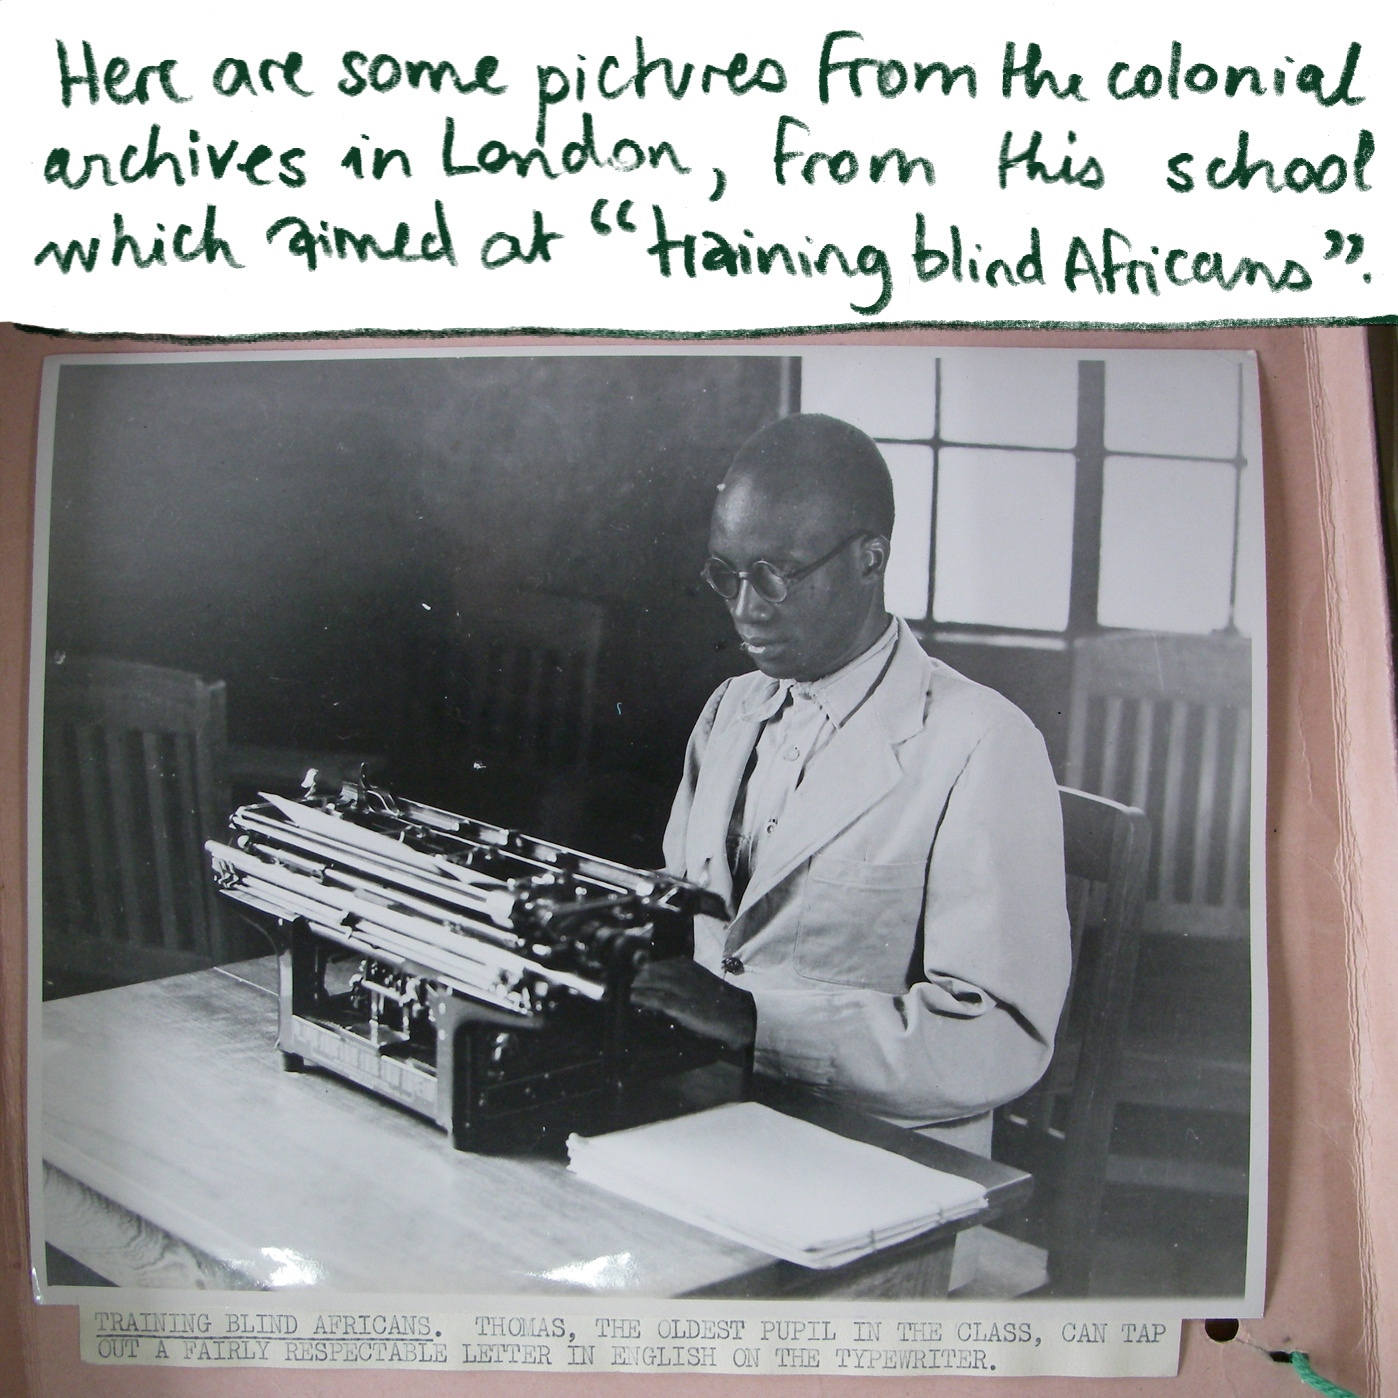 Here are some pictures from the colonial
archives in London, from this school
which aimed at “training blind Africans”.
TRAINING BLIND AFRICANS. THOMAS, THE OLDEST PUPIL IN THE CLASS, CAN TAP
OUT A FAIRLY RESPECTABLE LETTER IN ENGLISH ON THE TYPEWRITER.